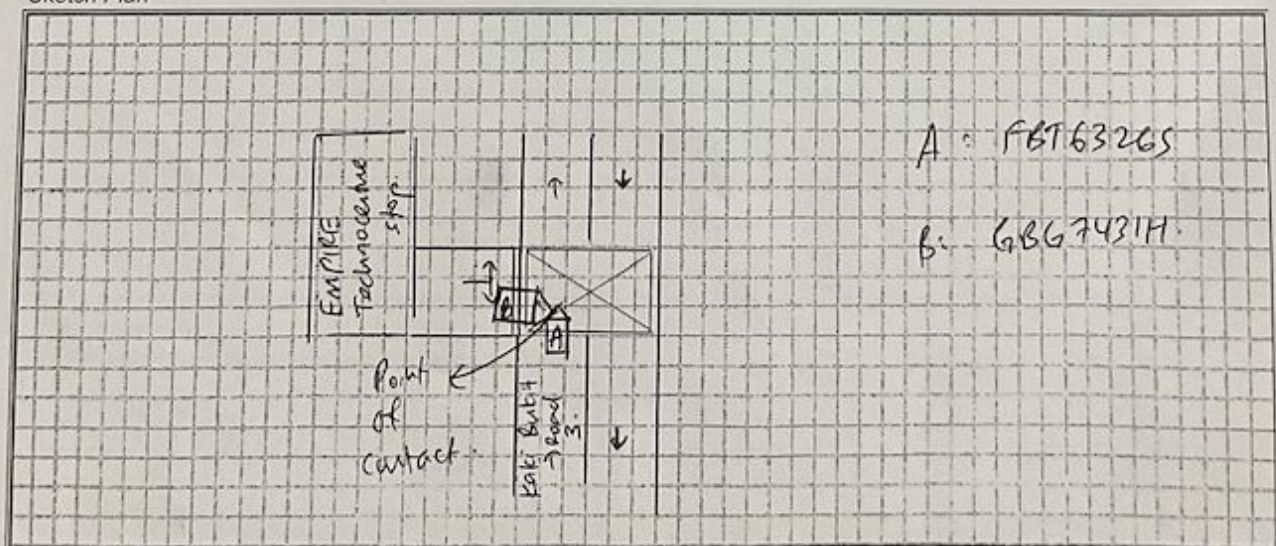 Sketch Plan
EMPIRE
Technocentre
stop.
A : FBT6326S
B: GBG7431H.
B
A
Point
of
contact.
Kaki Bukit
Road
3.